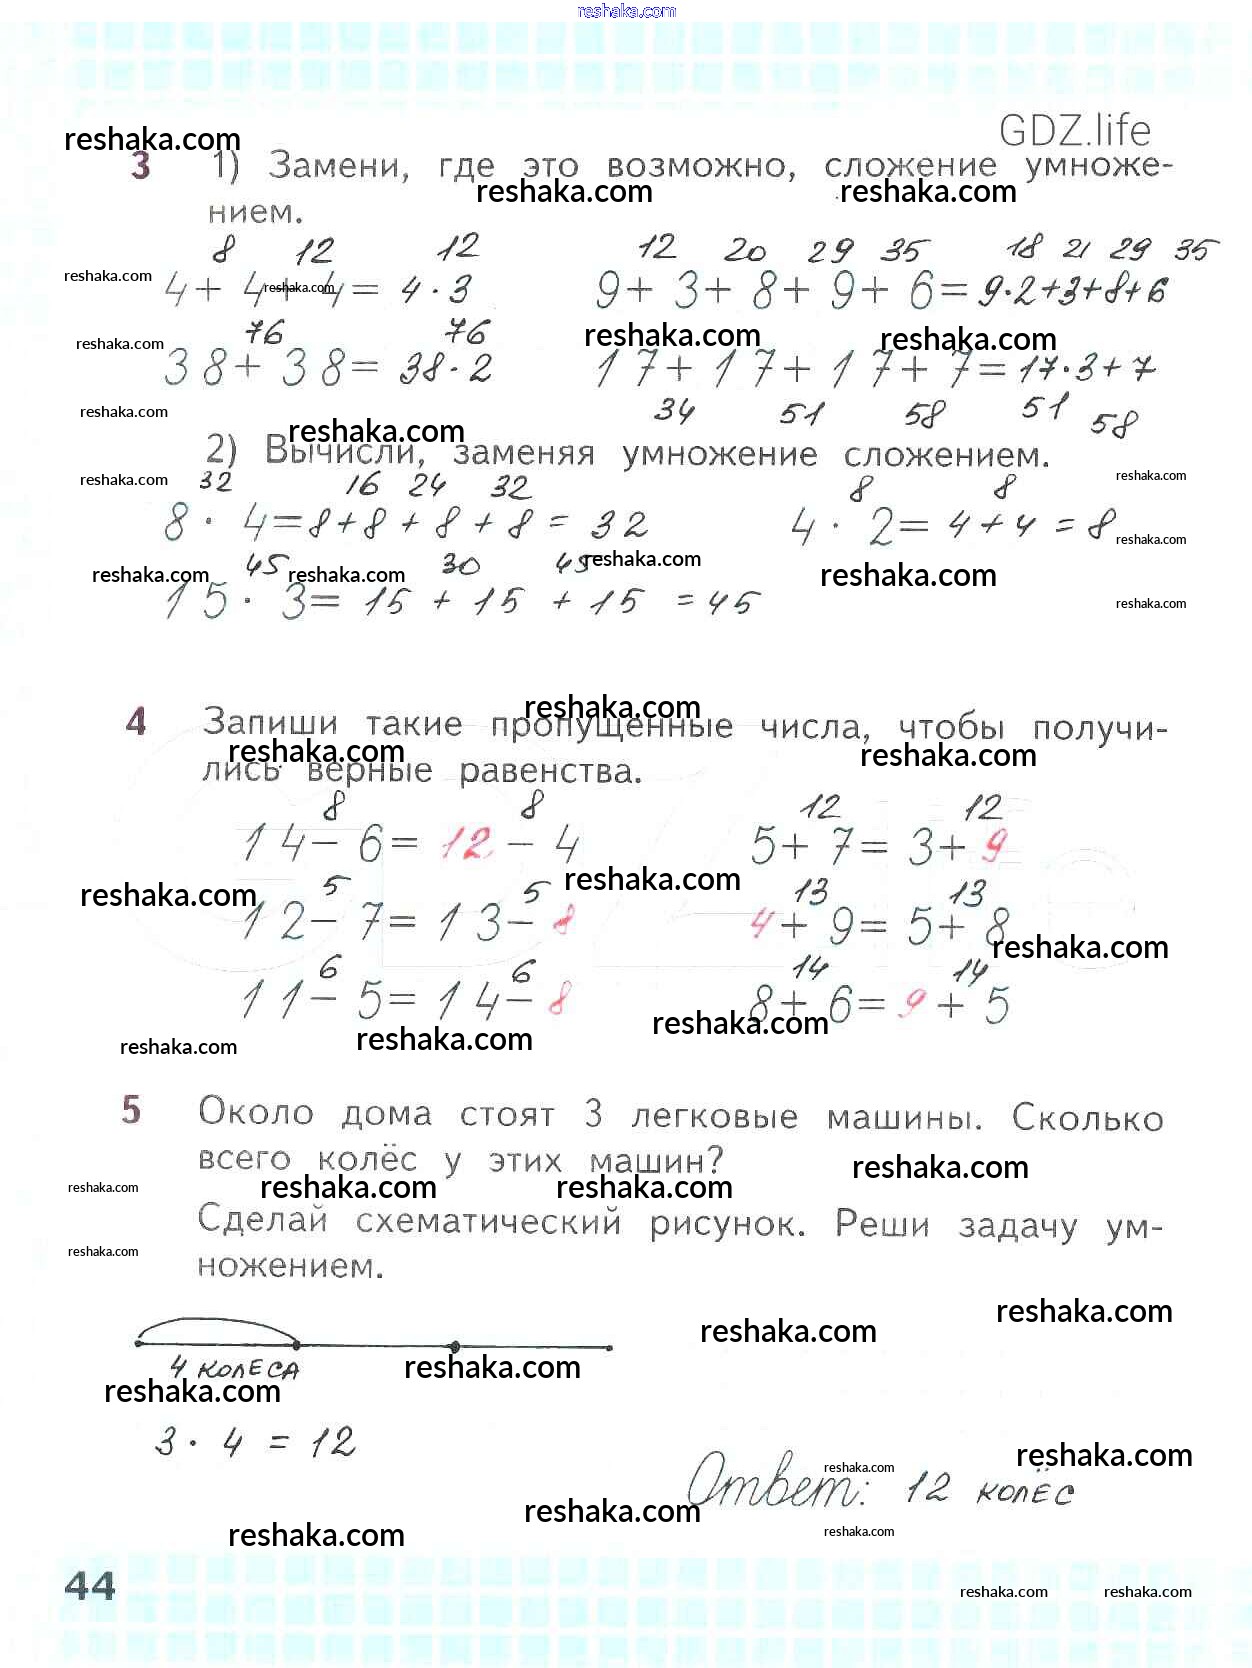 reshaka.com
GDZ.life
reshaka.com
3 1) Замени, где это возможно, сложение умноже-
reshaka.com reshaka.com
нием.
8 12 12 12 20 29 35 18 21 29 35
reshaka.com reshaka.com
4 + 4 + 4 = 4 · 3 9 + 3 + 8 + 9 + 6 = 9·2+3+8+6
76 76
reshaka.com reshaka.com reshaka.com
38 + 38 = 38 · 2 17 + 17 + 17 + 7 = 17·3+7
34 51 58 51 58
reshaka.com reshaka.com
2) Вычисли, заменяя умножение сложением.
reshaka.com 32 16 24 32 8 8 reshaka.com
8 · 4 = 8 + 8 + 8 + 8 = 32 4 · 2 = 4 + 4 = 8 reshaka.com
45 30 45 reshaka.com
reshaka.com reshaka.com reshaka.com
15 · 3 = 15 + 15 + 15 = 45 reshaka.com
reshaka.com
4 Запиши такие пропущенные числа, чтобы получи-
reshaka.com reshaka.com
лись верные равенства.
8 8 12 12
14 − 6 = 12 − 4 5 + 7 = 3 + 9
reshaka.com reshaka.com
5 5 13 13
12 − 7 = 13 − 8 4 + 9 = 5 + 8
reshaka.com
6 6 14 14
11 − 5 = 14 − 8 8 + 6 = 9 + 5
reshaka.com reshaka.com reshaka.com
5 Около дома стоят 3 легковые машины. Сколько
всего колёс у этих машин?
reshaka.com reshaka.com reshaka.com reshaka.com
Сделай схематический рисунок. Реши задачу ум-
reshaka.com
ножением.
reshaka.com
reshaka.com
4 колеса reshaka.com
reshaka.com
3 · 4 = 12
reshaka.com
reshaka.com
Ответ: 12 колёс
reshaka.com
reshaka.com reshaka.com
44
reshaka.com reshaka.com